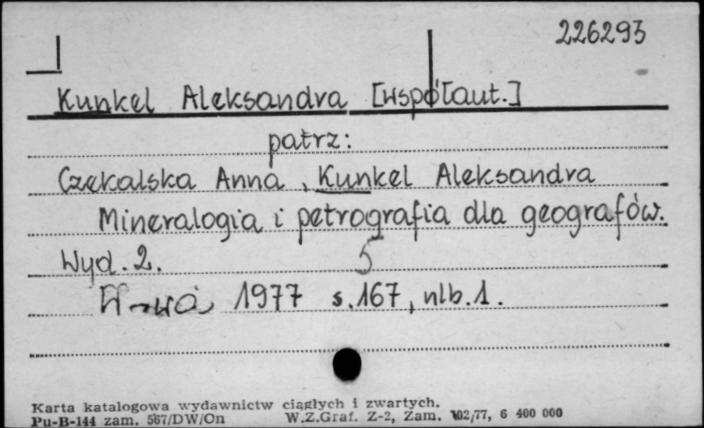 226293
Kunkel Aleksandra [współaut.]
patrz:
Czekalska Anna, Kunkel Aleksandra
Mineralogia i petrografia dla geografów.
Wyd. 2. 5
W-wa 1977 s. 167, nlb. 1.
Karta katalogowa wydawnictw ciągłych i zwartych.
Pu-B-144 zam. 567/DW/On W.Z.Graf. Z-2, Zam. 102/77, 6 400 000